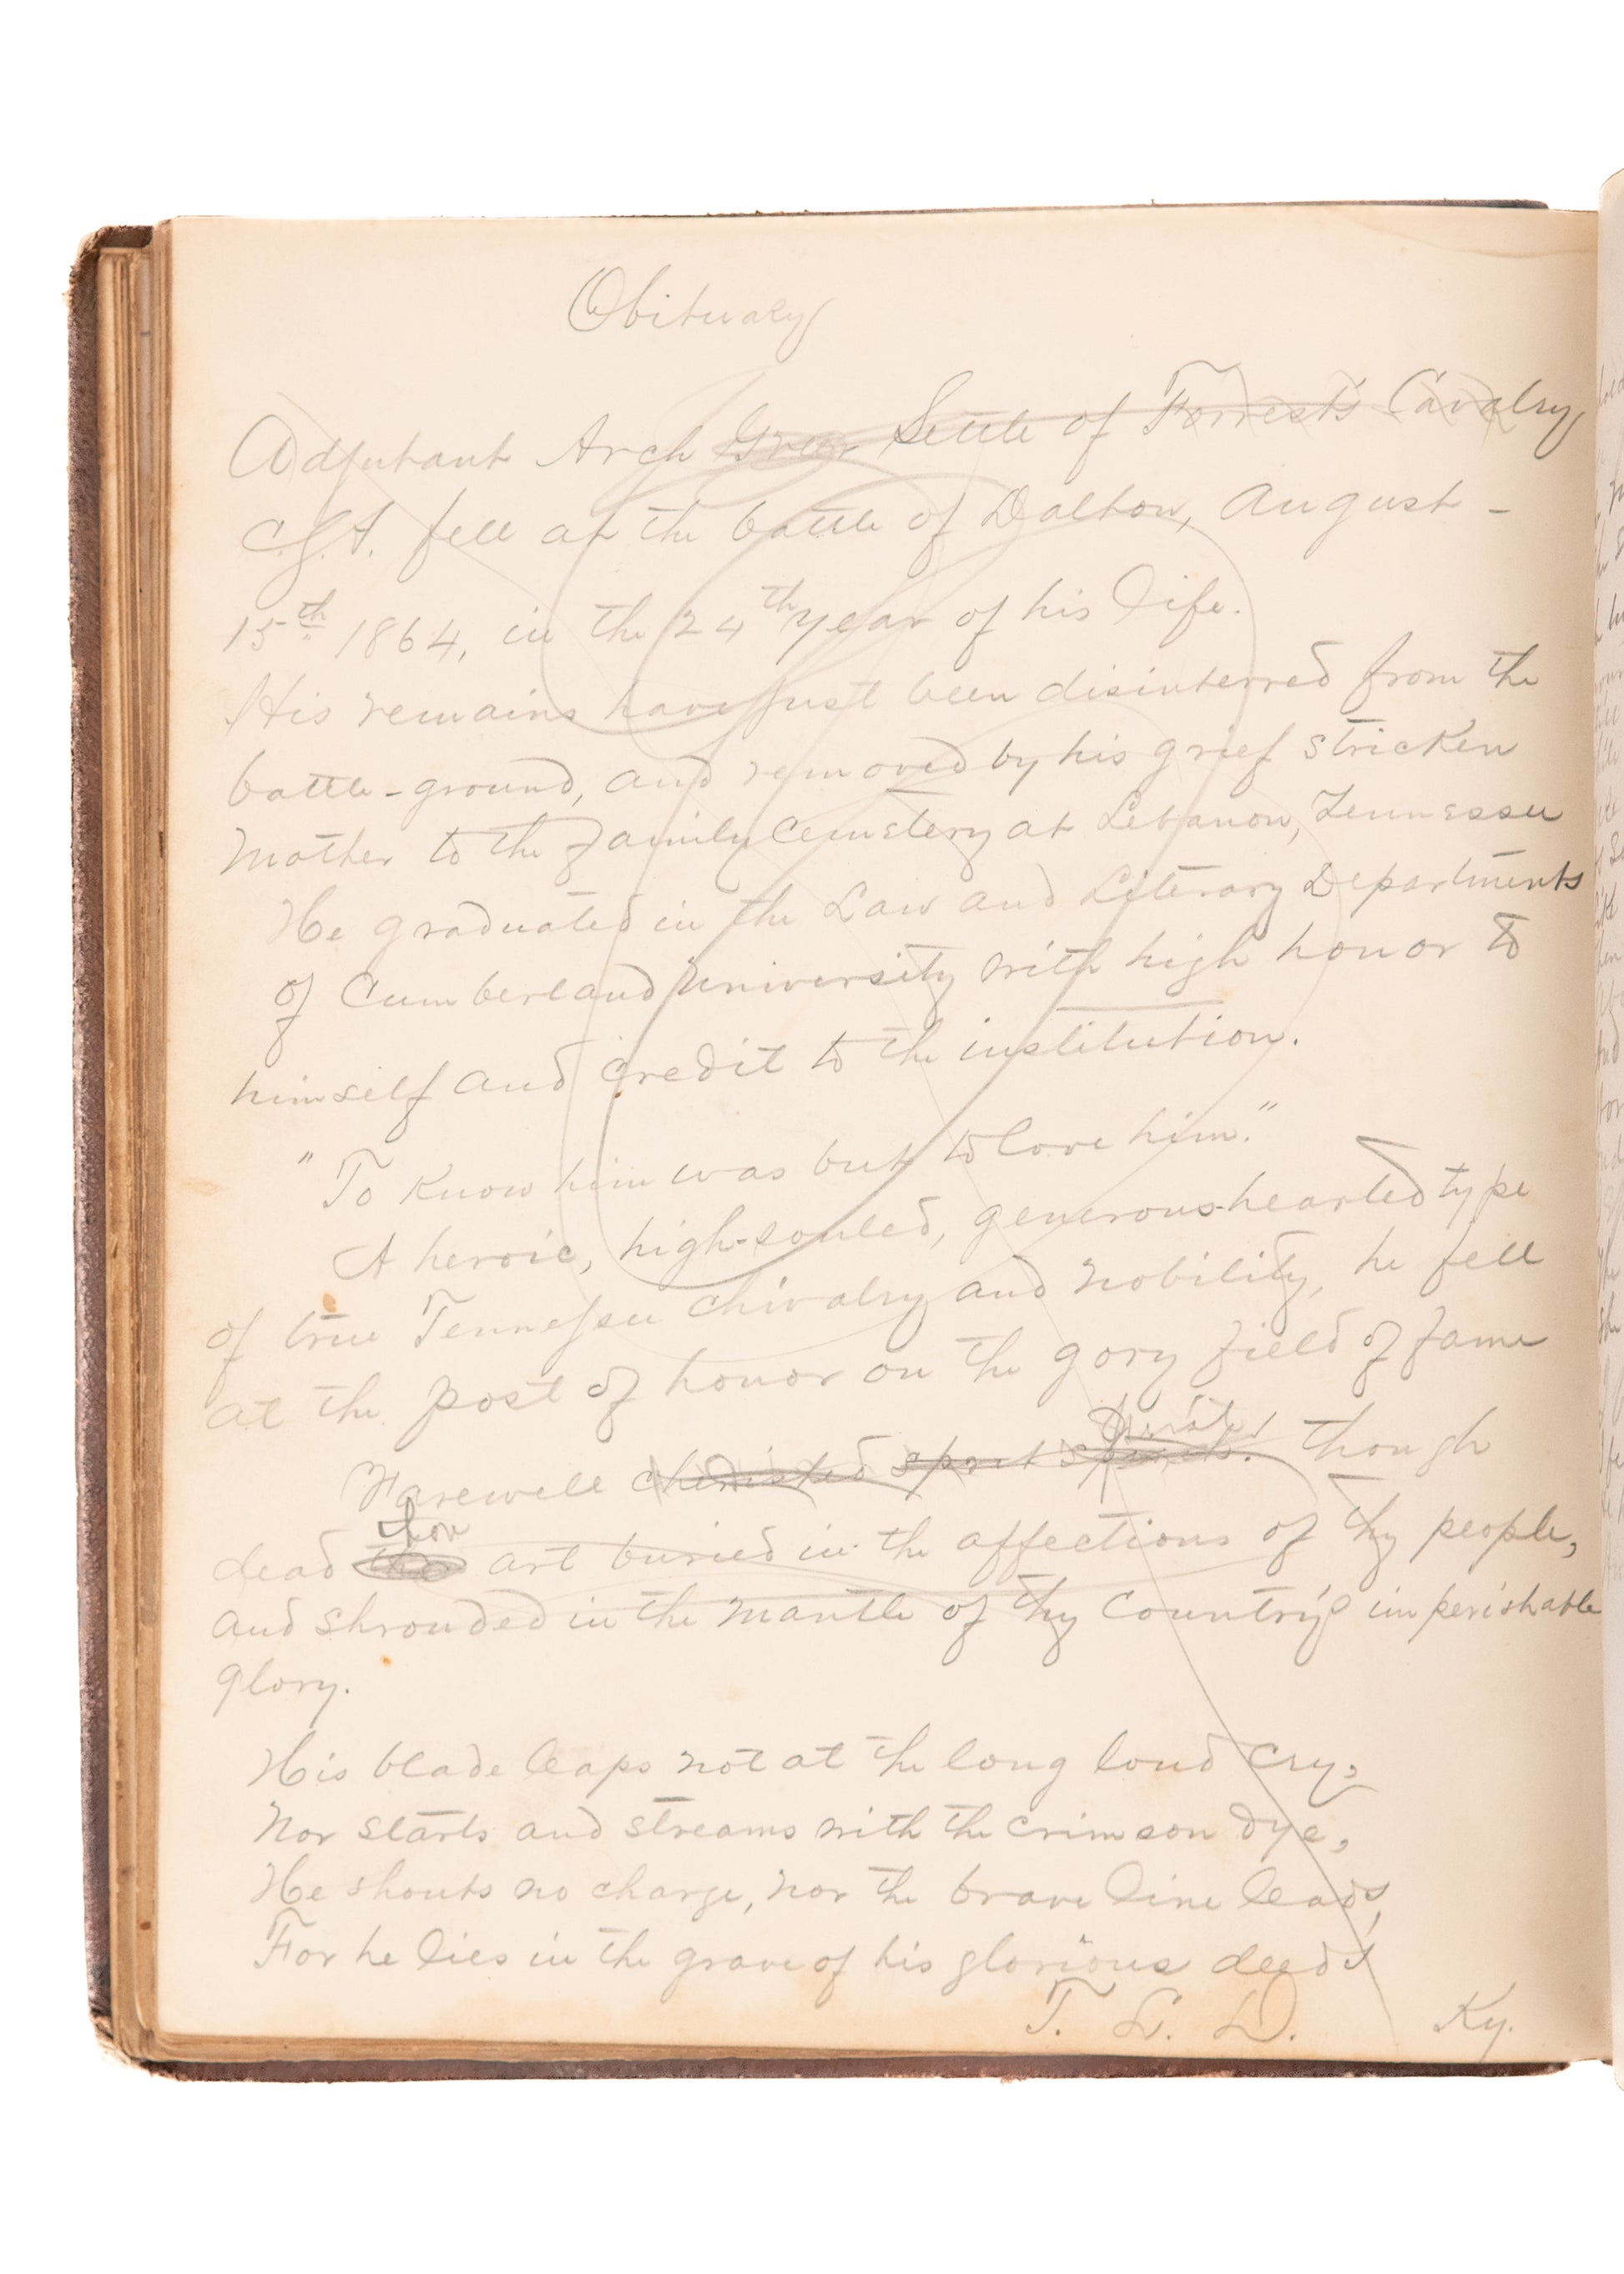 Obituary
Adjutant Arch Greer Settle of Forrest's Cavalry
C.S.A. fell at the battle of Dalton, August -
15th 1864, in the 24th year of his life.
His remains have just been disinterred from the
battle-ground, and removed by his grief stricken
Mother to the family Cemetery at Lebanon, Tennessee
He graduated in the Law and Literary Departments
of Cumberland University with high honor to
himself and credit to the institution.
"To Know him was but to love him."
A heroic, high-souled, generous-hearted type
of true Tennessee chivalry and nobility, he fell
at the post of honor on the gory field of fame
Farewell cherished though
dead thou art buried in the affections of thy people,
and shrouded in the mantle of thy Country's imperishable
glory.
His blade leaps not at the long loud cry,
Nor starts and streams with the crimson dye,
He shouts no charge, nor the brave line leads,
For he lies in the grave of his glorious deeds
T. L. D. Ky.